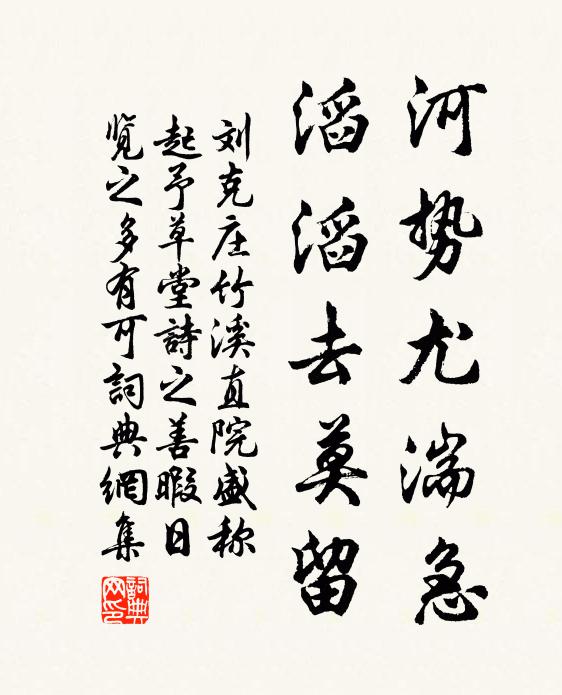 河势尤湍急
滔滔去莫留
刘克庄竹溪直院盛称
起予草堂詩之善暇日
览之多有可詞典網集
詞典网印